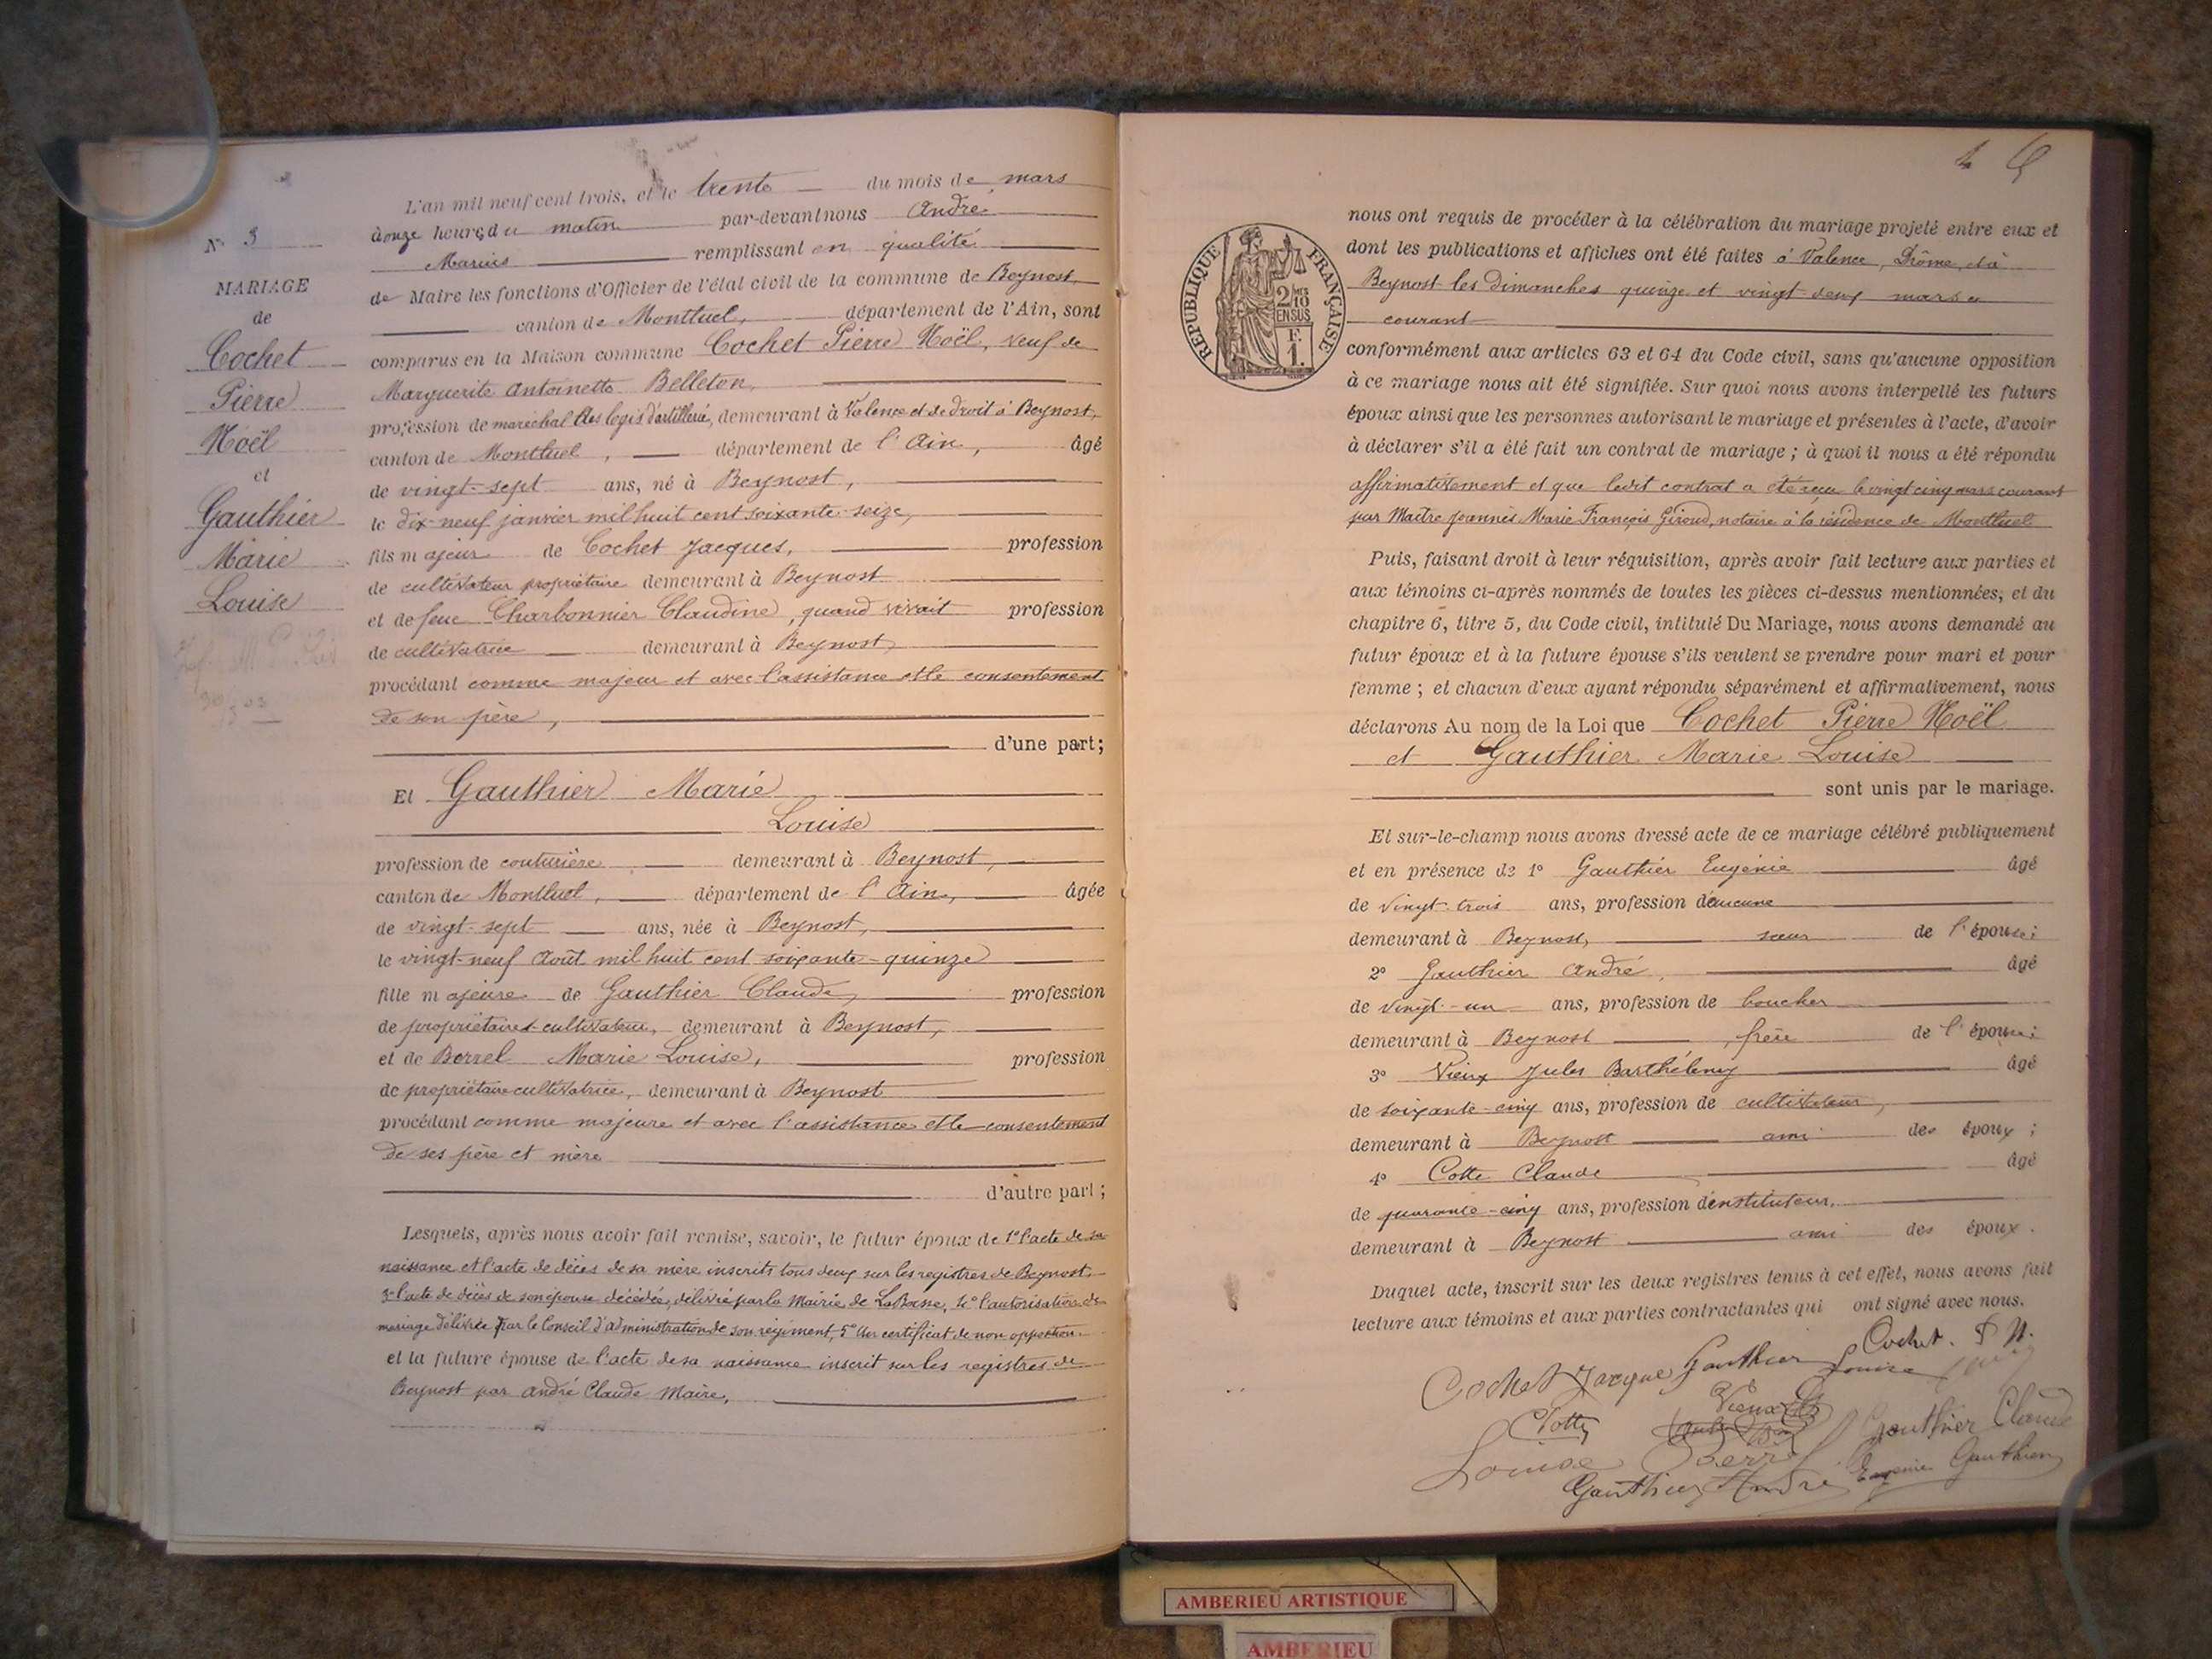 N° 3
MARIAGE
de
Cochet
Pierre
Noël
et
Gauthier
Marie
Louise
L'an mil neuf cent trois, et le trente du mois de mars
à onze heures du matin par-devant nous André
Marius remplissant en qualité
de Maire les fonctions d'Officier de l'état civil de la commune de Beynost,
canton de Montluel, département de l'Ain, sont
comparus en la Maison commune Cochet Pierre Noël, veuf de
Marguerite Antoinette Belleton,
profession de maréchal des logis d'artillerie, demeurant à Valence et de droit à Beynost,
canton de Montluel, département de l'Ain, âgé
de vingt-sept ans, né à Beynost,
le dix-neuf janvier mil huit cent soixante-seize,
fils majeur de Cochet Jacques, profession
de cultivateur propriétaire demeurant à Beynost
et de feue Charbonnier Claudine, quand vivait profession
de cultivatrice demeurant à Beynost,
procédant comme majeur et avec l'assistance et le consentement
de son père,
d'une part;
Et Gauthier Marie
Louise
profession de couturière demeurant à Beynost,
canton de Montluel, département de l'Ain, âgée
de vingt-sept ans, née à Beynost,
le vingt-neuf Août mil huit cent soixante-quinze
fille majeure de Gauthier Claude, profession
de propriétaire-cultivateur, demeurant à Beynost,
et de Berrel Marie Louise, profession
de propriétaire cultivatrice, demeurant à Beynost
procédant comme majeure et avec l'assistance et le consentement
de ses père et mère
d'autre part;
Lesquels, après nous avoir fait remise, savoir, le futur époux de 1° l'acte de sa
naissance et l'acte de décès de sa mère inscrits tous deux sur les registres de Beynost,
3° l'acte de décès de son épouse décédée, délivré par la Mairie de La Boisse, 4° l'autorisation de
mariage délivrée par le Conseil d'administration de son régiment, 5° Un certificat de non opposition
et la future épouse de l'acte de sa naissance inscrit sur les registres de
Beynost par André Claude Maire,
4
RÉPUBLIQUE FRANÇAISE
2/10 EN SUS
F. 1.
nous ont requis de procéder à la célébration du mariage projeté entre eux et
dont les publications et affiches ont été faites à Valence, Drôme, et à
Beynost les Dimanches quinze et vingt-deux mars
courant
conformément aux articles 63 et 64 du Code civil, sans qu'aucune opposition
à ce mariage nous ait été signifiée. Sur quoi nous avons interpellé les futurs
époux ainsi que les personnes autorisant le mariage et présentes à l'acte, d'avoir
à déclarer s'il a été fait un contrat de mariage ; à quoi il nous a été répondu
affirmativement et que ledit contrat a été reçu le vingt cinq mars courant
par Maître Joannès Marie François Giroud, notaire à la résidence de Montluel
Puis, faisant droit à leur réquisition, après avoir fait lecture aux parties et
aux témoins ci-après nommés de toutes les pièces ci-dessus mentionnées, et du
chapitre 6, titre 5, du Code civil, intitulé Du Mariage, nous avons demandé au
futur époux et à la future épouse s'ils veulent se prendre pour mari et pour
femme ; et chacun d'eux ayant répondu séparément et affirmativement, nous
déclarons Au nom de la Loi que Cochet Pierre Noël
et Gauthier Marie Louise
sont unis par le mariage.
Et sur-le-champ nous avons dressé acte de ce mariage célébré publiquement
et en présence de 1° Gauthier Eugénie âgé
de vingt-trois ans, profession d'aucune
demeurant à Beynost, sœur de l'épouse;
2° Gauthier André, âgé
de vingt-un ans, profession de boucher
demeurant à Beynost, frère de l'épouse;
3° Vieux Jules Barthélemy âgé
de soixante-cinq ans, profession de cultivateur,
demeurant à Beynost ami des époux ;
4° Cotte Claude âgé
de quarante-cinq ans, profession d'instituteur,
demeurant à Beynost ami des époux.
Duquel acte, inscrit sur les deux registres tenus à cet effet, nous avons fait
lecture aux témoins et aux parties contractantes qui ont signé avec nous.
Cochet Jacque Gauthier Louise Cochet. P N.
Cotte Vieux Gauthier Claude
Louise Berrel
Gauthier André Eugénie Gauthier
AMBERIEU ARTISTIQUE
AMBERIEU